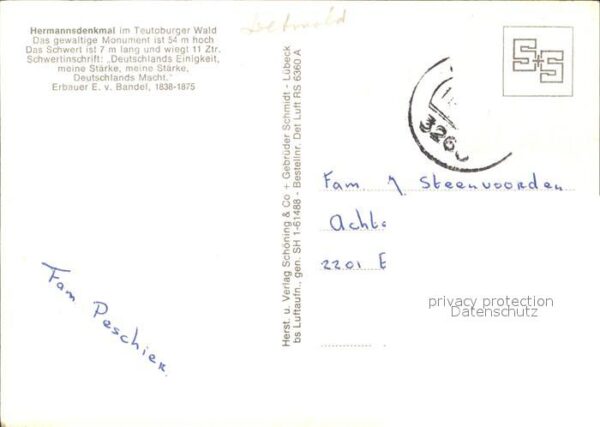 Hermannsdenkmal im Teutoburger Wald
Das gewaltige Monument ist 54 m hoch
Das Schwert ist 7 m lang und wiegt 11 Ztr.
Schwertinschrift: „Deutschlands Einigkeit,
meine Stärke, meine Stärke,
Deutschlands Macht."
Erbauer E. v. Bandel, 1838-1875
Detmold
Herst. u. Verlag Schöning & Co + Gebrüder Schmidt - Lübeck
bs Luftaufn., gen. SH 1-61488 - Bestellnr. Det Luft RS 6360 A
S+S
326
Fam Steenvoorden
Achte
2201 E
privacy protection
Datenschutz
Fam Peschier